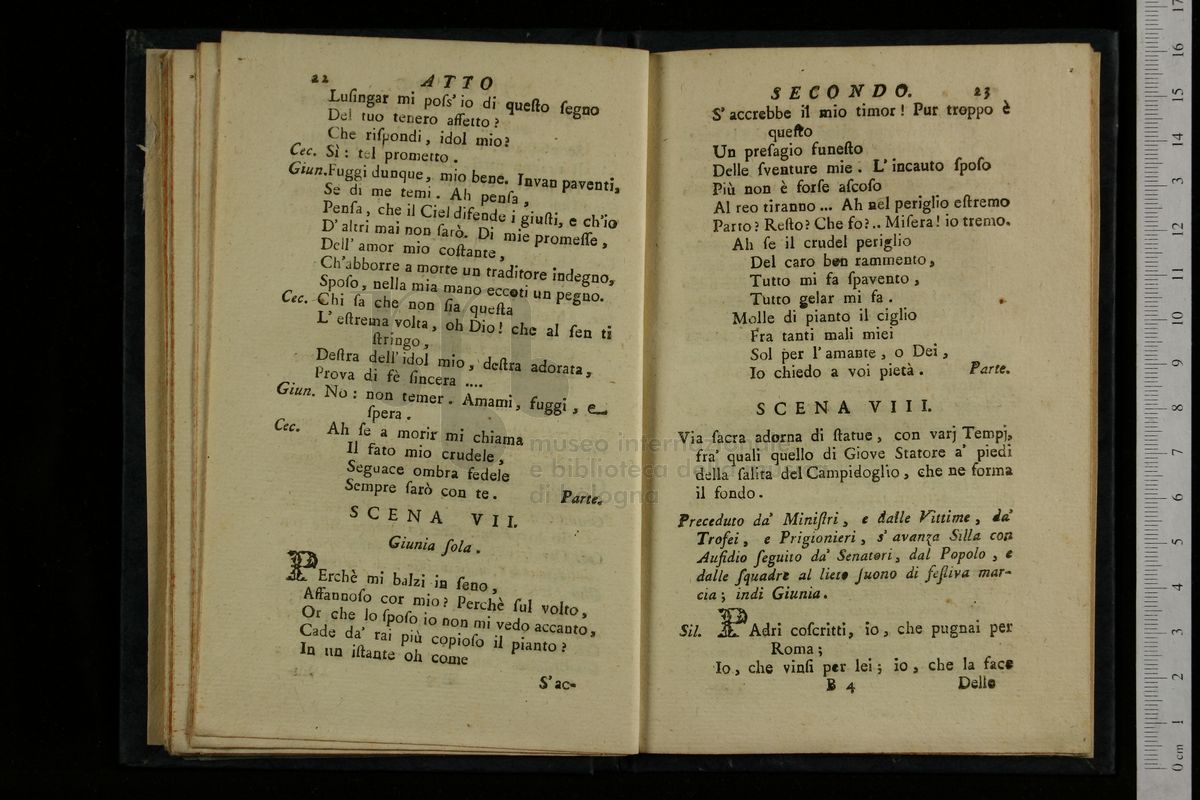 22 ATTO
Luſingar mi poſs' io di queſto ſegno
Del tuo tenero affetto?
Che riſpondi, idol mio?
Cec. Sì: tel prometto.
Giun. Fuggi dunque, mio bene. Invan paventi,
Se di me temi. Ah penſa,
Penſa, che il Ciel difende i giuſti, e ch'io
D' altri mai non ſarò. Di mie promeſſe,
Dell' amor mio coſtante,
Ch'abborre a morte un traditore indegno,
Spoſo, nella mia mano eccoti un pegno.
Cec. Chi ſa che non ſia queſta
L' eſtrema volta, oh Dio! che al ſen ti
ſtringo,
Deſtra dell' idol mio, deſtra adorata,
Prova di fè ſincera ....
Giun. No: non temer. Amami, fuggi, e
ſpera.
Cec. Ah ſe a morir mi chiama
Il fato mio crudele,
Seguace ombra fedele
Sempre ſarò con te. Parte.
SCENA VII.
Giunia ſola.
PErchè mi balzi in ſeno,
Affannoſo cor mio? Perchè ſul volto,
Or che lo ſpoſo io non mi vedo accanto,
Cade da' rai più copioſo il pianto?
In un iſtante oh come
S'ac-
SECONDO. 23
S' accrebbe il mio timor! Pur troppo è
queſto
Un preſagio funeſto
Delle ſventure mie. L' incauto ſpoſo
Più non è forſe aſcoſo
Al reo tiranno ... Ah nel periglio eſtremo
Parto? Reſto? Che fo?.. Miſera! io tremo.
Ah ſe il crudel periglio
Del caro ben rammento,
Tutto mi fa ſpavento,
Tutto gelar mi fa.
Molle di pianto il ciglio
Fra tanti mali miei
Sol per l' amante, o Dei,
Io chiedo a voi pietà. Parte.
SCENA VIII.
Via ſacra adorna di ſtatue, con varj Tempj,
fra' quali quello di Giove Statore a' piedi
della ſalita del Campidoglio, che ne forma
il fondo.
Preceduto da' Miniſtri, e dalle Vittime, da'
Trofei, e Prigionieri, s' avanza Silla con
Aufidio ſeguito da' Senatori, dal Popolo, e
dalle ſquadre al lieto ſuono di feſtiva mar-
cia; indi Giunia.
Sil. PAdri coſcritti, io, che pugnai per
Roma;
Io, che vinſi per lei; io, che la face
B 4 Delle
museo internazionale
e biblioteca della musica
di bologna
0 cm 1 2 3 4 5 6 7 8 9 10 11 12 13 14 15 16 17